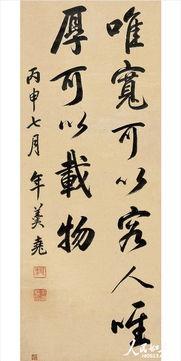 唯寬可以容人唯
厚可以載物
丙申七月 年羹堯
人民網